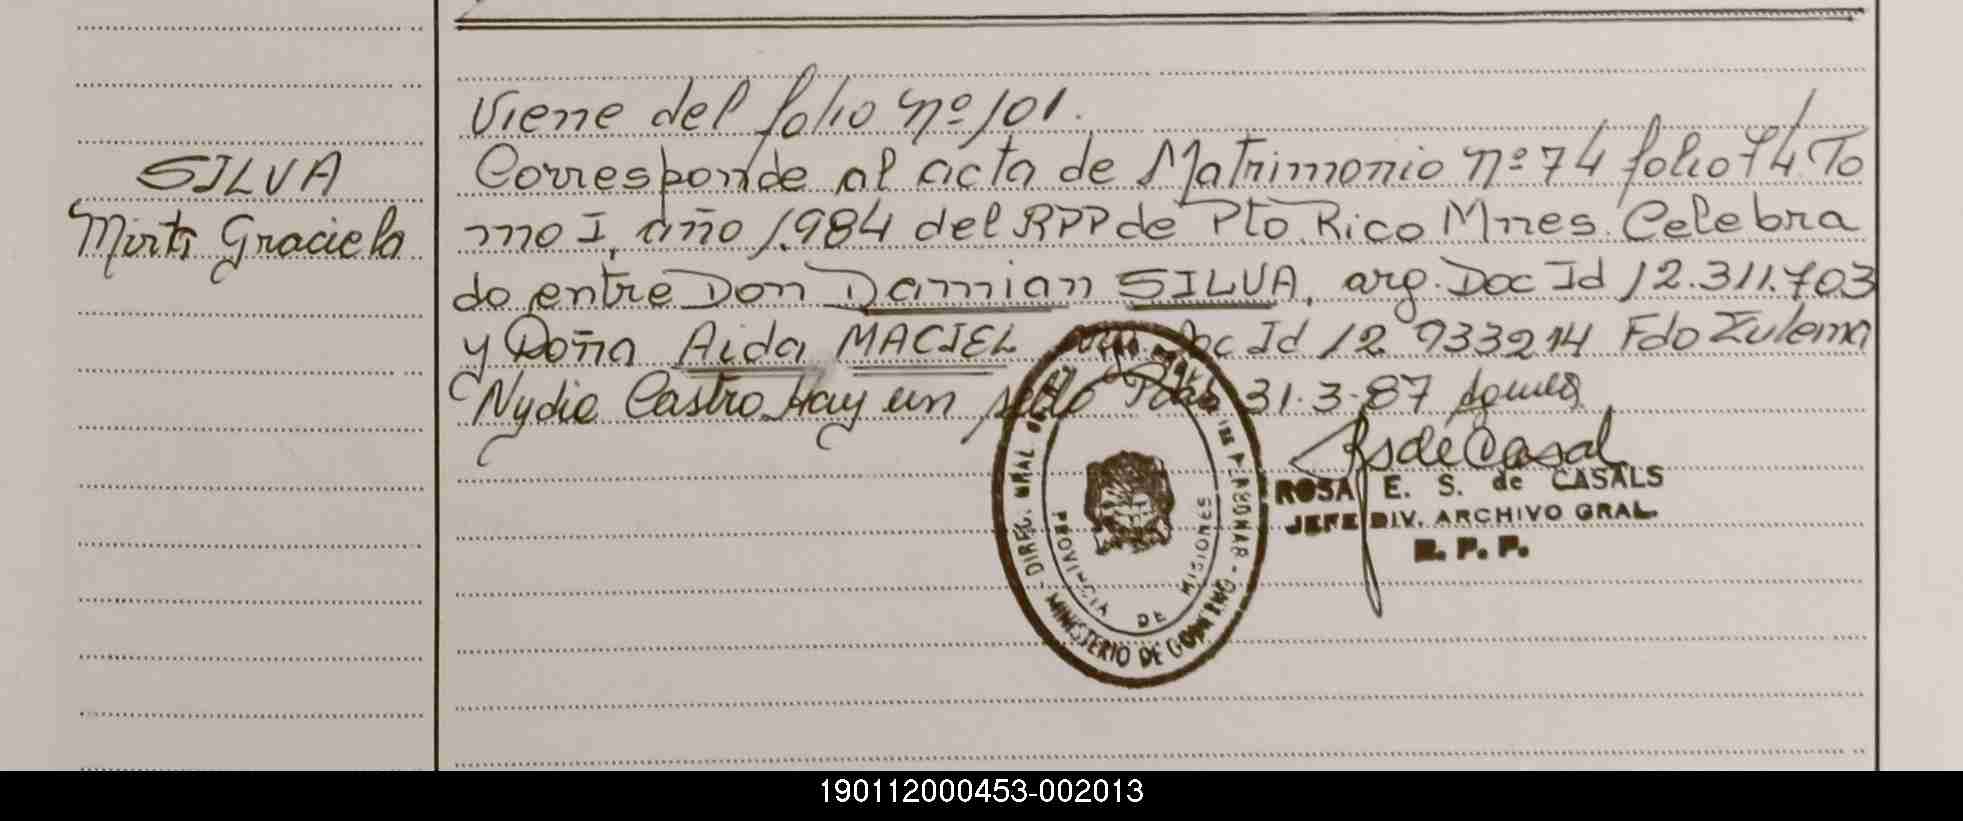 Viene del folio nº 101.
SILVA
Mirta Graciela
Corresponde al acta de Matrimonio nº 74 folio 74 To
mo I, año 1.984 del RPP de Pto Rico Mnes. Celebra
do entre Don Damian SILVA, arg. Doc Id 12.311.703
y Doña Aida MACIEL arg Doc Id 12 933214 Fdo Zulema
Nydia Castro Hay un sello Pdas 31.3.87
ROSA E. S. de CASALS
JEFE DIV. ARCHIVO GRAL.
R. P. P.
DIREC. GRAL.
MINISTERIO DE GOBIERNO
PROVINCIA DE MISIONES
190112000453-002013